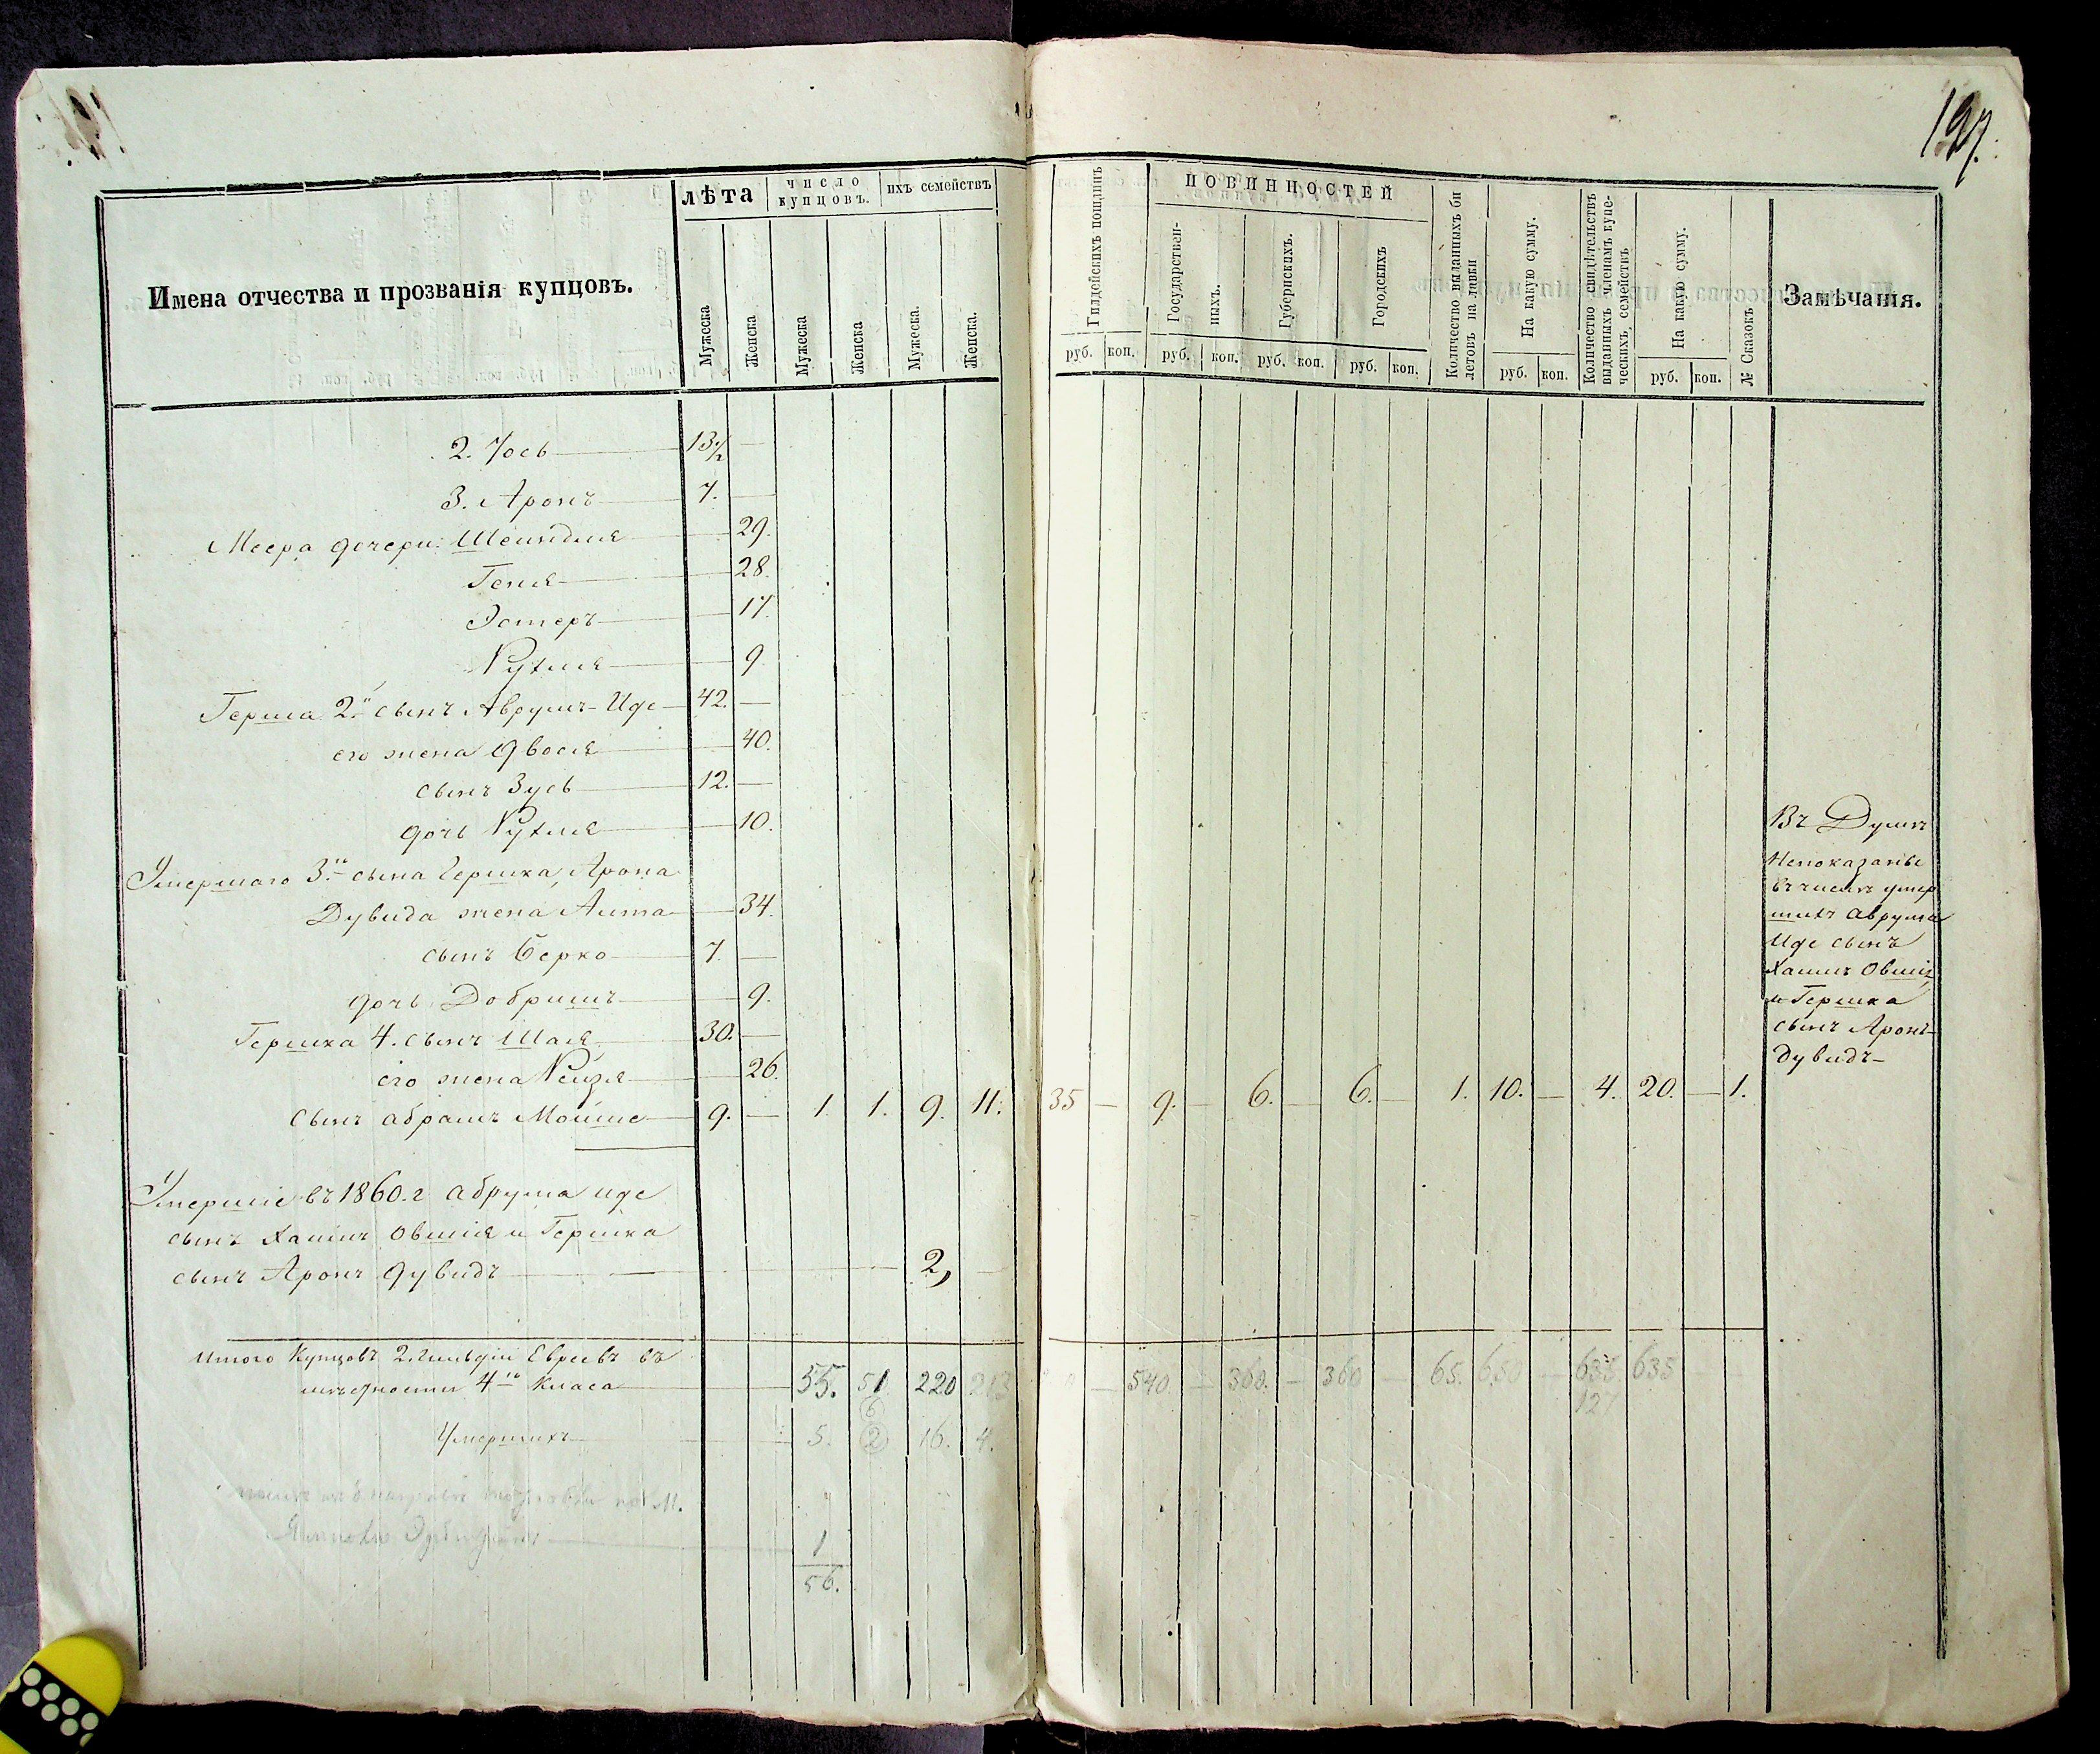 197.
Имена отчества и прозванія купцовъ.
лѣта
число купцовъ.
ихъ семействъ
Мужеска
Женска
Мужеска
Женска
Мужеска.
Женска.
Гилдейскихъ пошлинъ
ПОВИННОСТЕЙ
Государствен-
ныхъ.
Губернскихъ.
Городскихъ
Количество выданныхъ би
летовъ на лавки
На какую сумму.
Количество свидѣтельствъ
выданныхъ членамъ купе-
ческихъ семействъ
На какую сумму.
№ Сказокъ
Замѣчанія.
руб. коп. руб. коп. руб. коп. руб. коп. руб. коп. руб. коп.
2. Іось 13½ —
3. Аронъ 7. —
Меера дочери: Шейндля — 29.
Геня — 28.
Эстеръ — 17.
Рухля — 9.
Герша 2й сынъ Аврумъ-Иде 42. —
его жена Двося — 40.
сынъ Зусь 12. —
дочь Рухля — 10.
Умершаго 3го сына Гершка, Арона
Дувида жена Аита — 34.
сынъ Берко 7. —
дочь Добришъ — 9.
Гершка 4. сынъ Шая 30. —
его жена Рейзя — 26.
сынъ Абрамъ Мойше 9. — 1. 1. 9. 11. 35 — 9. — 6. — 6. — 1. 10. — 4. 20. — 1.
Въ Думѣ
Непоказаны
въ числѣ умер
шихъ Аврума
Иде сынъ
Хаимъ Овшія
и Гершка
сынъ Аронъ-
Дувидъ-
Умершіе въ 1860. г Абрума Иде
сынъ Хаимъ Овшія и Гершка
сынъ Аронъ Дувидъ — 2,
Итого Купцовъ 2. Гильдіи Евреевъ въ
мѣстности 4го Класа 55. 51 220 213 — 540. — 360. — 360 — 65. 650 — 635. 635
6 127
Умершихъ 5. 2 16. 4.
1
56.